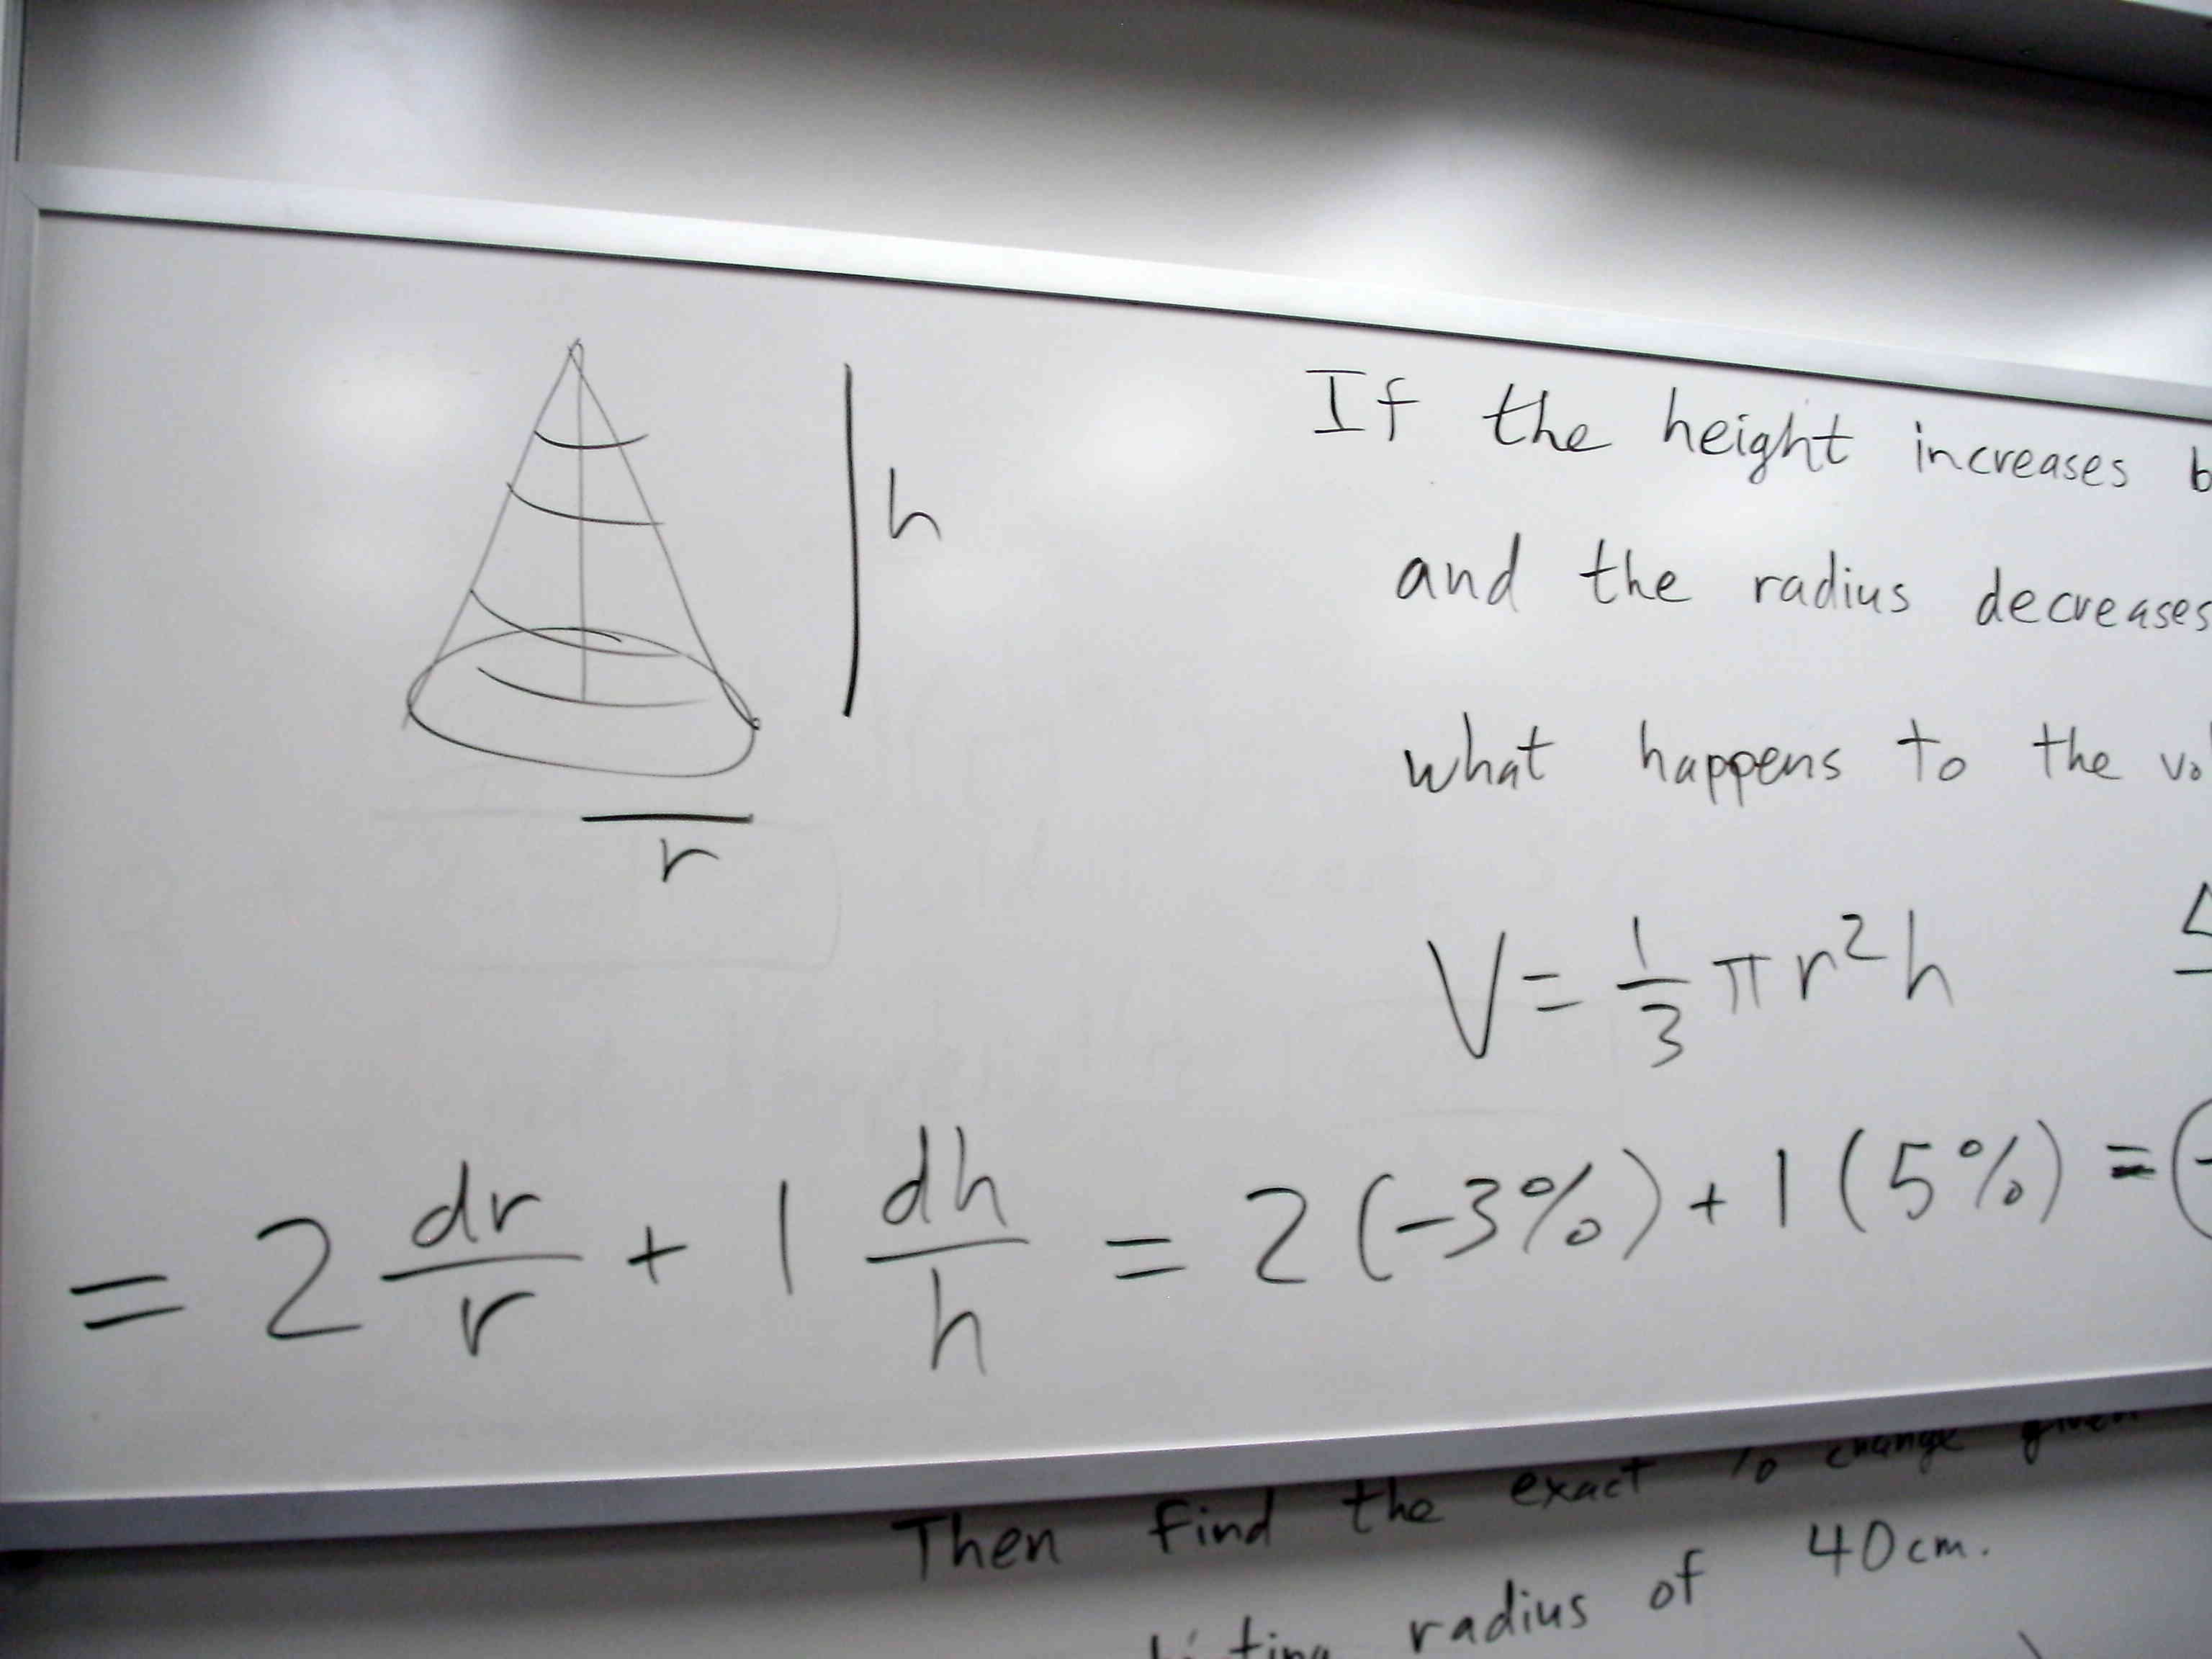 h
r
If the height increases
and the radius decreases
what happens to the
V = 1/3 π r² h
= 2 dr/r + 1 dh/h = 2 (-3%) + 1 (5%) =
Then find the exact % change given
radius of 40cm.